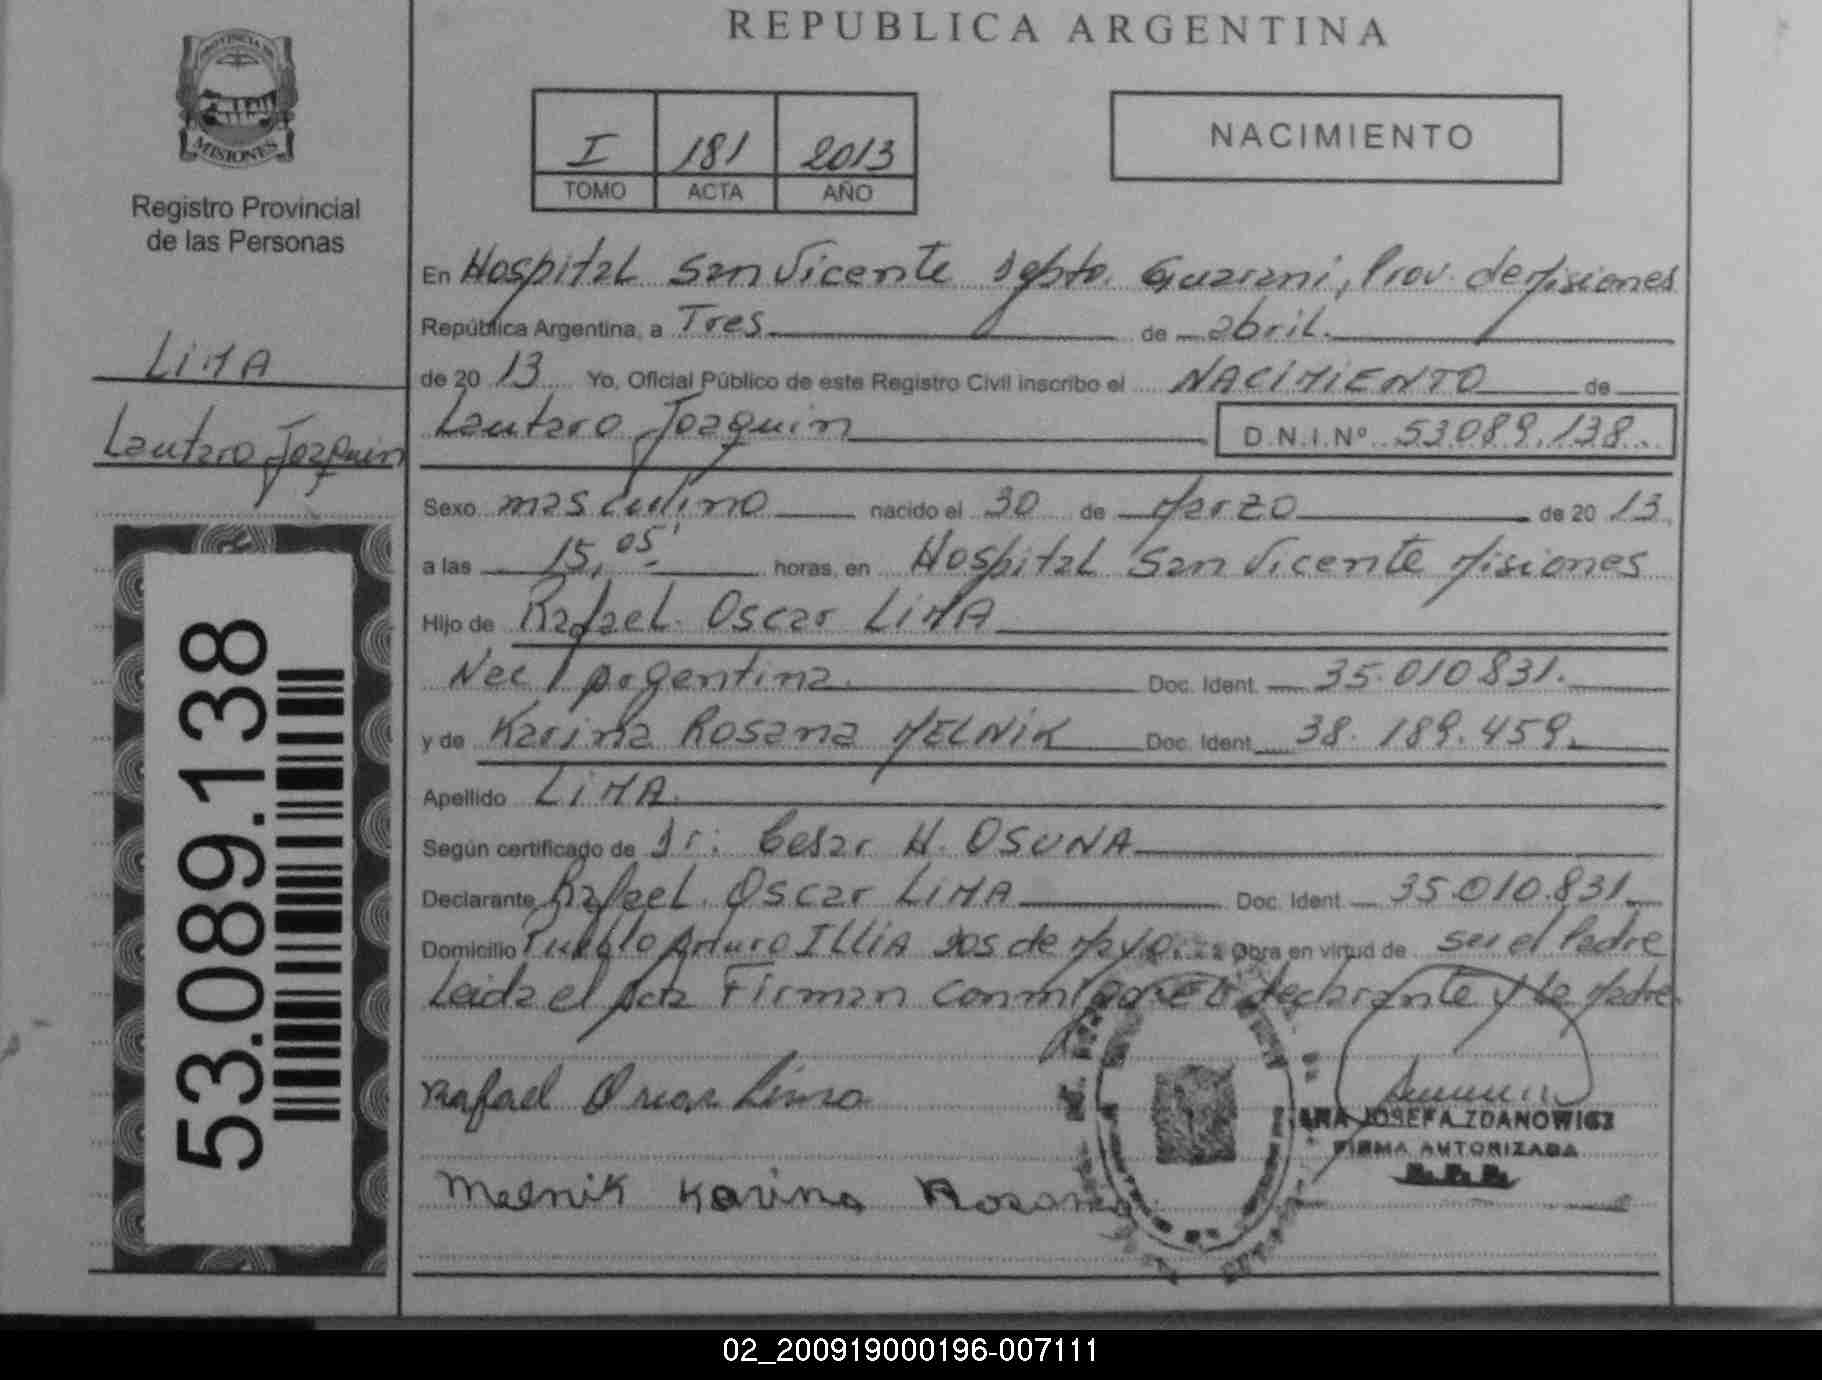 REPUBLICA ARGENTINA
PROVINCIA DE
MISIONES
Registro Provincial
de las Personas
I 181 2013
TOMO ACTA AÑO
NACIMIENTO
LIMA
Lautaro Joaquin
53.089.138
En Hospital San Vicente Depto. Guarani, Prov. de Misiones
República Argentina, a Tres de abril.
de 20 13 Yo, Oficial Público de este Registro Civil inscribo el NACIMIENTO de
Lautaro Joaquin D.N.I.Nº 53089.138.
Sexo masculino nacido el 30 de Marzo de 20 13
a las 15,05' horas, en Hospital San Vicente Misiones
Hijo de Rafael Oscar LIMA
Nac Argentina. Doc. Ident. 35.010831.
y de Karina Rosana MELNIK Doc. Ident. 38.189.459.
Apellido LIMA.
Según certificado de Dr: Cesar H. OSUNA
Declarante Rafael Oscar LIMA Doc. Ident. 35.010.831
Domicilio Pueblo Arturo ILLIA Dos de Mayo Obra en virtud de ser el Padre
Leida el Acta Firman conmigo el declarante y la Madre.
Rafael Oscar Lima
Melnik Karina Rosana
ANA JOSEFA ZDANOWICZ
FIRMA AUTORIZADA
02_200919000196-007111